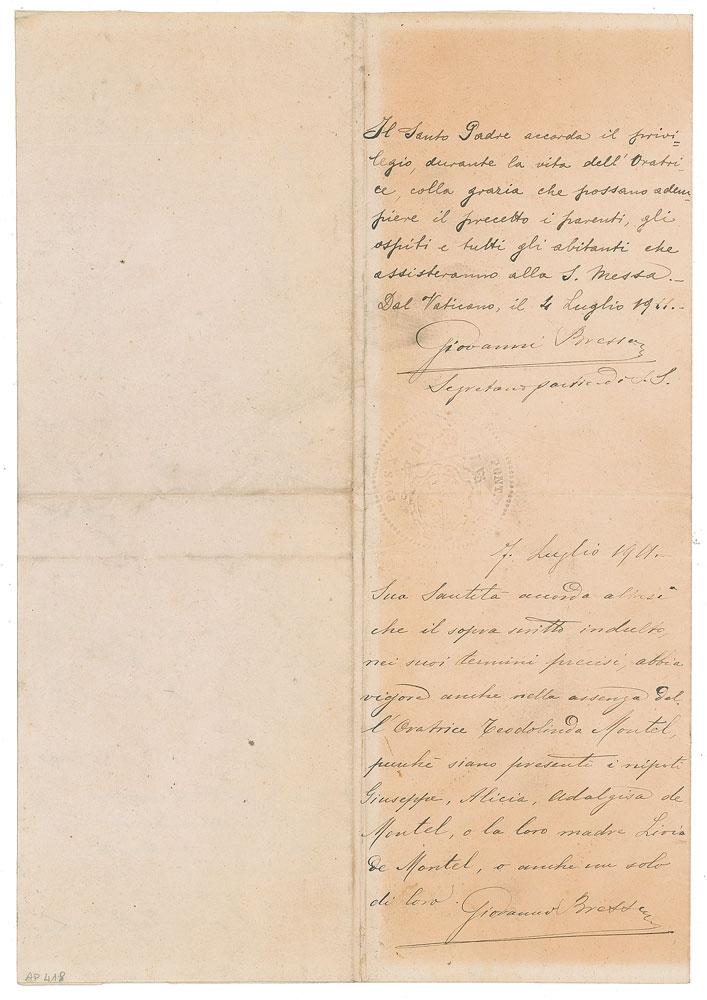 Il Santo Padre accorda il privi=
legio, durante la vita dell'Oratri-
ce, colla grazia che possano adem-
piere il precetto i parenti, gli
ospiti e tutti gli abitanti che
assisteranno alla S. Messa.-
Dal Vaticano, il 4 Luglio 1911.-
Giovanni Bressan
Segretario partic. di S.S.
PONT.
7. Luglio 1911.-
Sua Santità accorda altresì
che il sopra scritto indulto,
nei suoi termini precisi, abbia
vigore anche nella assenza del-
l'Oratrice Teodolinda Montel,
purchè siano presenti i nipoti
Giuseppe, Alicia, Adalgisa de
Montel, o la loro madre Livia
de Montel, o anche un solo
di loro.
Giovanni Bressan
AP 418